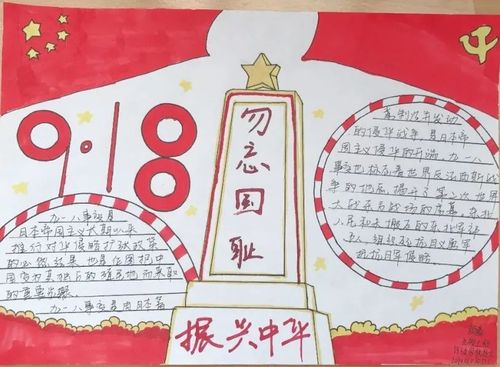 9.18
勿忘国耻
振兴中华
九一八事变是
日本帝国主义长期以来
推行对华侵略扩张政策
的必然结果,也是企图把中
国变为其独占的殖民地而采取
的重要步骤。
九一八事变是由日本蓄
意制造并发动
的侵华战争,是日本帝
国主义侵华的开端。九一八
事变也标志着世界反法西斯战
争的起点,揭开了第二次世界
大战东方战场的序幕。东北
人民和未撤走的东北军
组织抗日义勇军
抵抗日军侵略